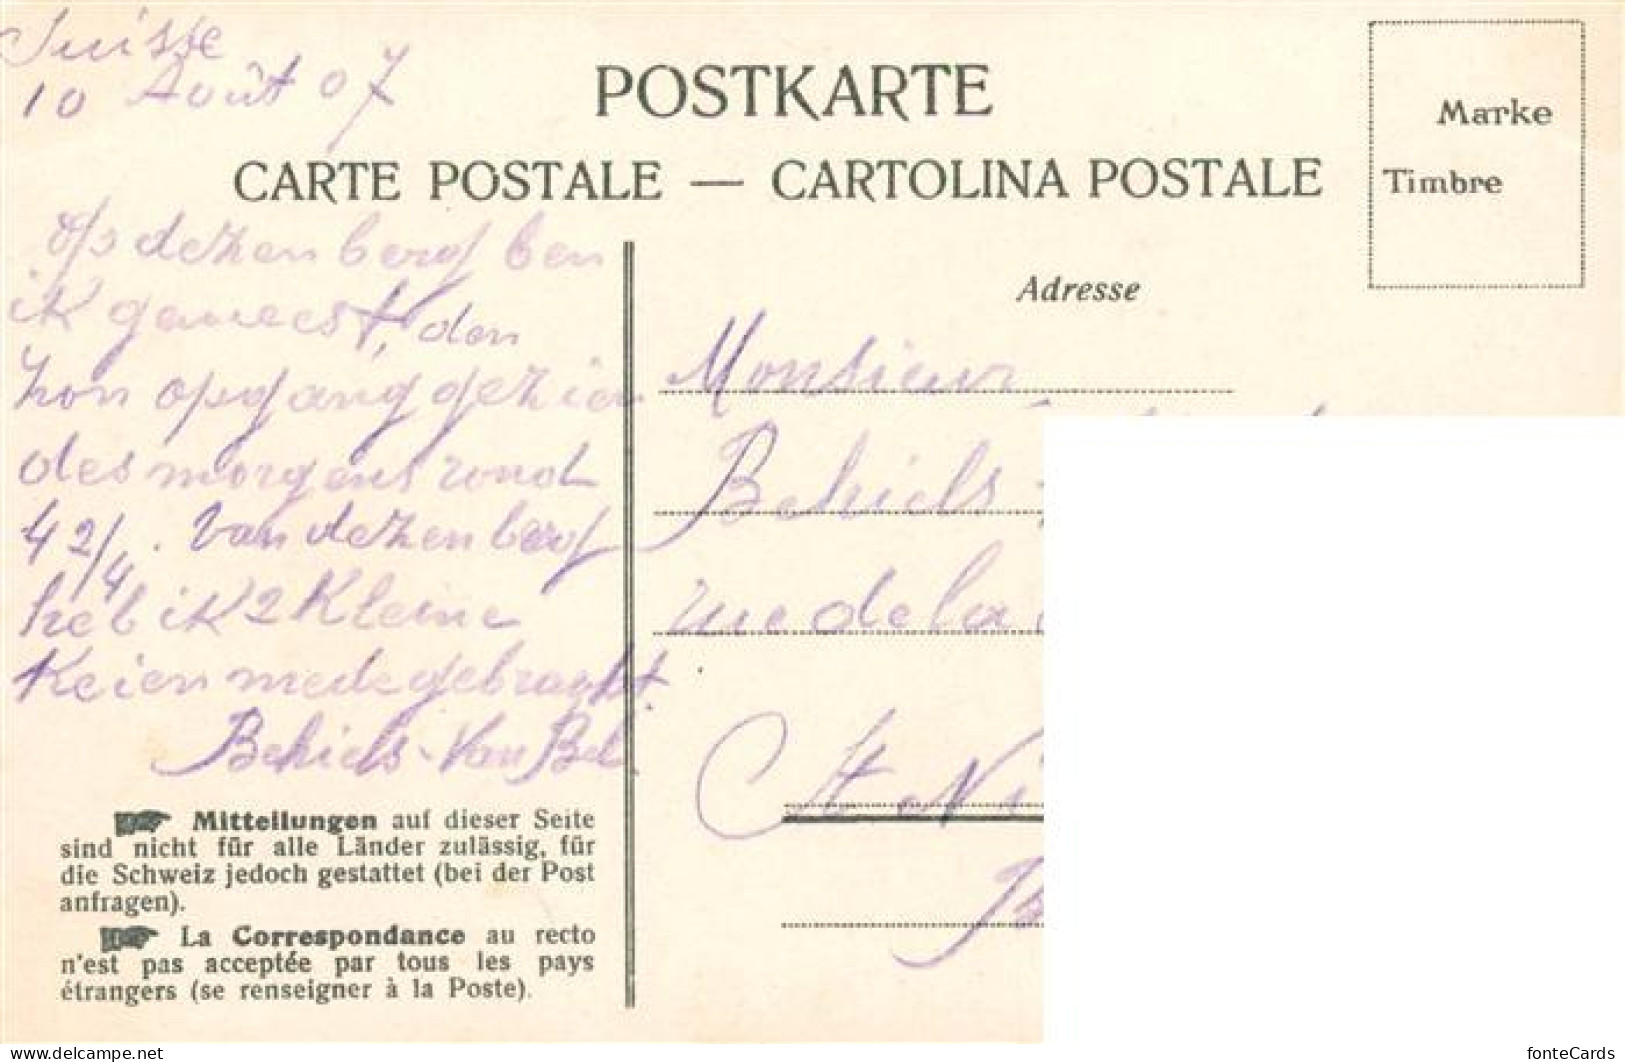 Suisse
10 Août 07
POSTKARTE
CARTE POSTALE — CARTOLINA POSTALE
Marke
Timbre
op dezen berg ben
ik geweest, den
zon opgang gezien
des morgens rond
4 2/4. Van dezen berg
heb ik 2 kleine
keien mede gebracht.
Behiels-Van Bel.
Mitteilungen auf dieser Seite
sind nicht für alle Länder zulässig, für
die Schweiz jedoch gestattet (bei der Post
anfragen).
La Correspondance au recto
n'est pas acceptée par tous les pays
étrangers (se renseigner à la Poste).
Adresse
Monsieur
Behiels
rue de la
St Ni
www.delcampe.net
fonteCards